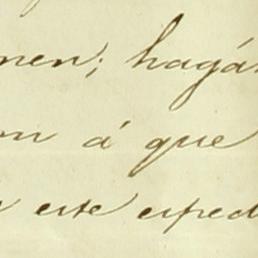 nen; hagá
om á que
este esped